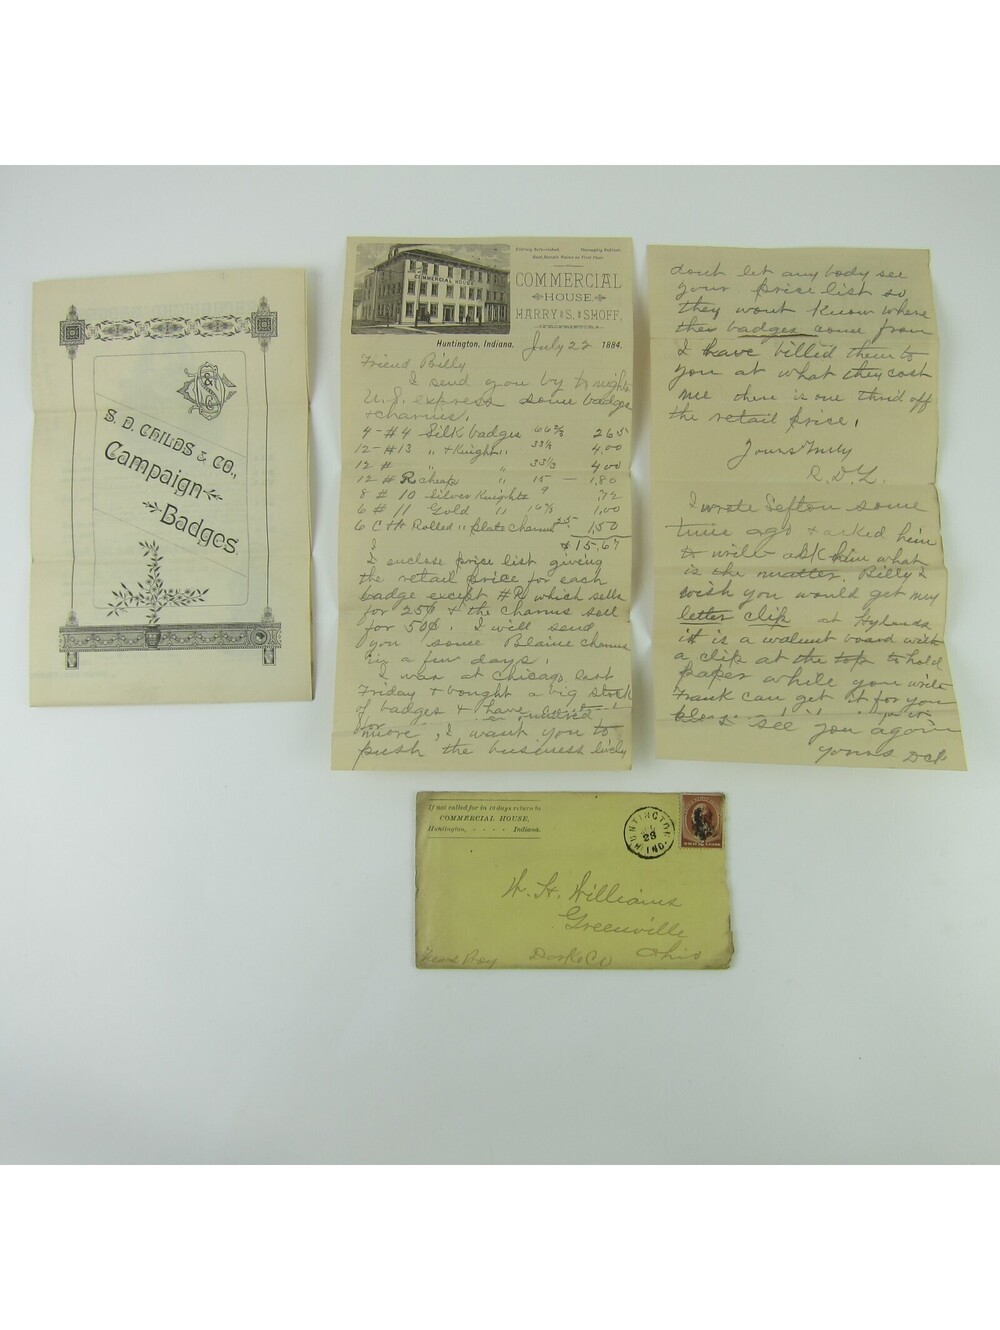 S. D. CHILDS & CO.,
Campaign
Badges.
COMMERCIAL HOUSE
COMMERCIAL
HOUSE,
HARRY S. SHOFF,
PROPRIETOR.
Huntington, Indiana. July 22 1884.
Friend Billy
I send you by to nights
U.S. express some badges
& charms.
4 - #4 Silk badges 66 2/3 2.65
12 - #13 " & Knights " 33 1/3 4.00
12 # " " 33 1/3 4.00
12 # R cheap " 15 — 1.80
8 # 10 Silver Knights 9 .72
6 # 11 Gold " 16 2/3 1.00
6 C & A Rolled " plate Charms 25 - 1.50
$15.67
I enclose price list giving
the retail price for each
badge except #R which sells
for 25¢ & the charms sell
for 50¢. I will send
you some Blaine charms
in a few days.
I was at Chicago last
Friday & bought a big stock
of badges & have ordered
for more, I want you to
push the business lively
dont let any body see
your price list so
they wont know where
the badges come from
I have billed them to
you at what they cost
me there is one third off
the retail price.
Yours Truly
D.L.
I wrote Sefton some
time ago & asked him
to write ask him what
is the matter. Billy I
wish you would get my
letter clip at Hylands
it is a walnut board with
a clip at the top to hold
paper while you write
Frank can get it for you
see you again
Yours
If not called for in 10 days return to
COMMERCIAL HOUSE,
Huntington, - - - - Indiana.
HUNTINGTON
28
IND.
W. H. Williams
Greenville
Dark Co Ohio